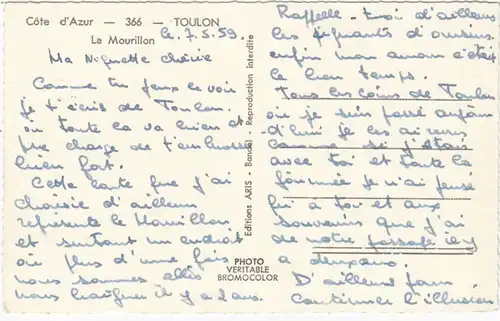 Côte d'Azur — 366 — TOULON
Le Mourillon
le 7.5.59
Ma Niquette chérie
Comme tu peux le voir
je t'écris de Toulon.
où toute ça va bien et
me charge de t'embrasser
bien fort.
Cette carte que j'ai
choisie d'ailleurs
représente le Mourillon
et surtout un endroit
où plus d'une fois
nous sommes allés
nous baigner il y a 2 ans.
Editions ARIS - Bandol - Reproduction Interdite
PHOTO
VERITABLE
BROMOCOLOR
Rappelle-toi d'ailleurs
les piquants d'oursins
enfin mon amour c'était
le bon temps.
Tous les coins de Toulon
où je suis passé aujour
d'hui je les ai revus
comme si j'étais
avec toi et toute la
journée je n'ai pensé
qu'à toi et aux
souvenirs que j'ai
de notre passage il y
a deux ans.
D'ailleurs pour
continuer l'illusion